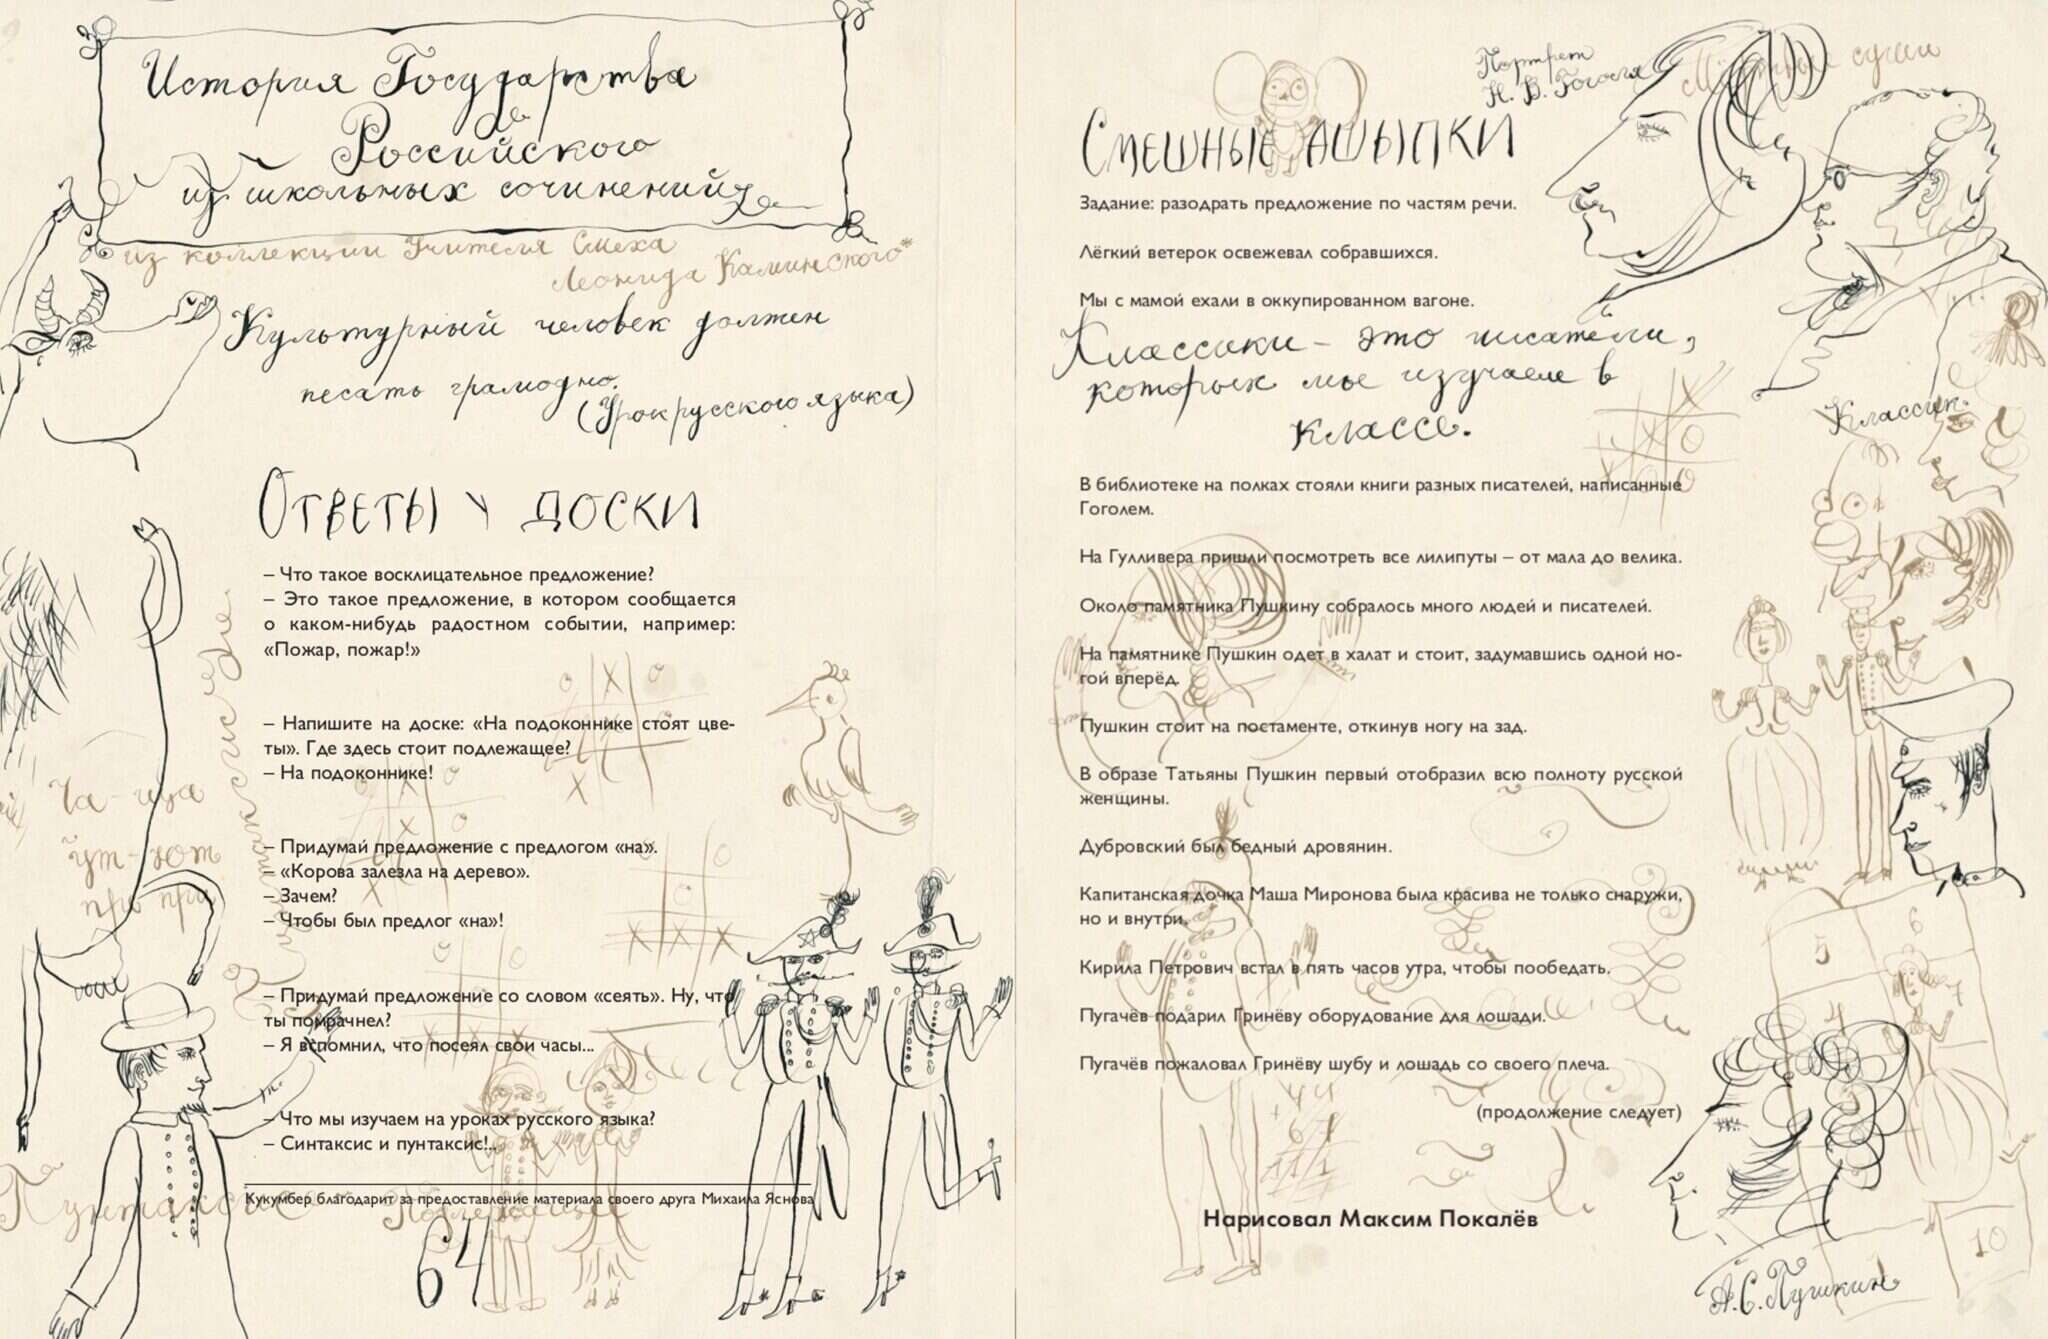 История Государства
Российского
из школьных сочинений
из коллекции Учителя Смеха
Леонида Каминского*
Культурный человек должен
песать грамодно.
(Урок русского языка)
Ответы у доски
– Что такое восклицательное предложение?
– Это такое предложение, в котором сообщается
о каком-нибудь радостном событии, например:
«Пожар, пожар!»
– Напишите на доске: «На подоконнике стоят цве-
ты». Где здесь стоит подлежащее?
– На подоконнике!
– Придумай предложение с предлогом «на».
– «Корова залезла на дерево».
– Зачем?
– Чтобы был предлог «на»!
– Придумай предложение со словом «сеять». Ну, что
ты помрачнел?
– Я вспомнил, что посеял свои часы...
– Что мы изучаем на уроках русского языка?
– Синтаксис и пунтаксис!..
Ча-ща
ут-ют
Пунтаксис
Кукумбер благодарит за предоставление материала своего друга Михаила Яснова
64
Портрет
Н. В. Гоголя
Смешные ашыпки
Задание: разодрать предложение по частям речи.
Лёгкий ветерок освежевал собравшихся.
Мы с мамой ехали в оккупированном вагоне.
Классики – это писатели,
которых мы изучаем в
классе.
Классик.
В библиотеке на полках стояли книги разных писателей, написанные
Гоголем.
На Гулливера пришли посмотреть все лилипуты – от мала до велика.
Около памятника Пушкину собралось много людей и писателей.
На памятнике Пушкин одет в халат и стоит, задумавшись одной но-
гой вперёд.
Пушкин стоит на постаменте, откинув ногу на зад.
В образе Татьяны Пушкин первый отобразил всю полноту русской
женщины.
Дубровский был бедный дровянин.
Капитанская дочка Маша Миронова была красива не только снаружи,
но и внутри.
Кирила Петрович встал в пять часов утра, чтобы пообедать.
Пугачёв подарил Гринёву оборудование для лошади.
Пугачёв пожаловал Гринёву шубу и лошадь со своего плеча.
(продолжение следует)
Нарисовал Максим Покалёв
А.С.Пушкин